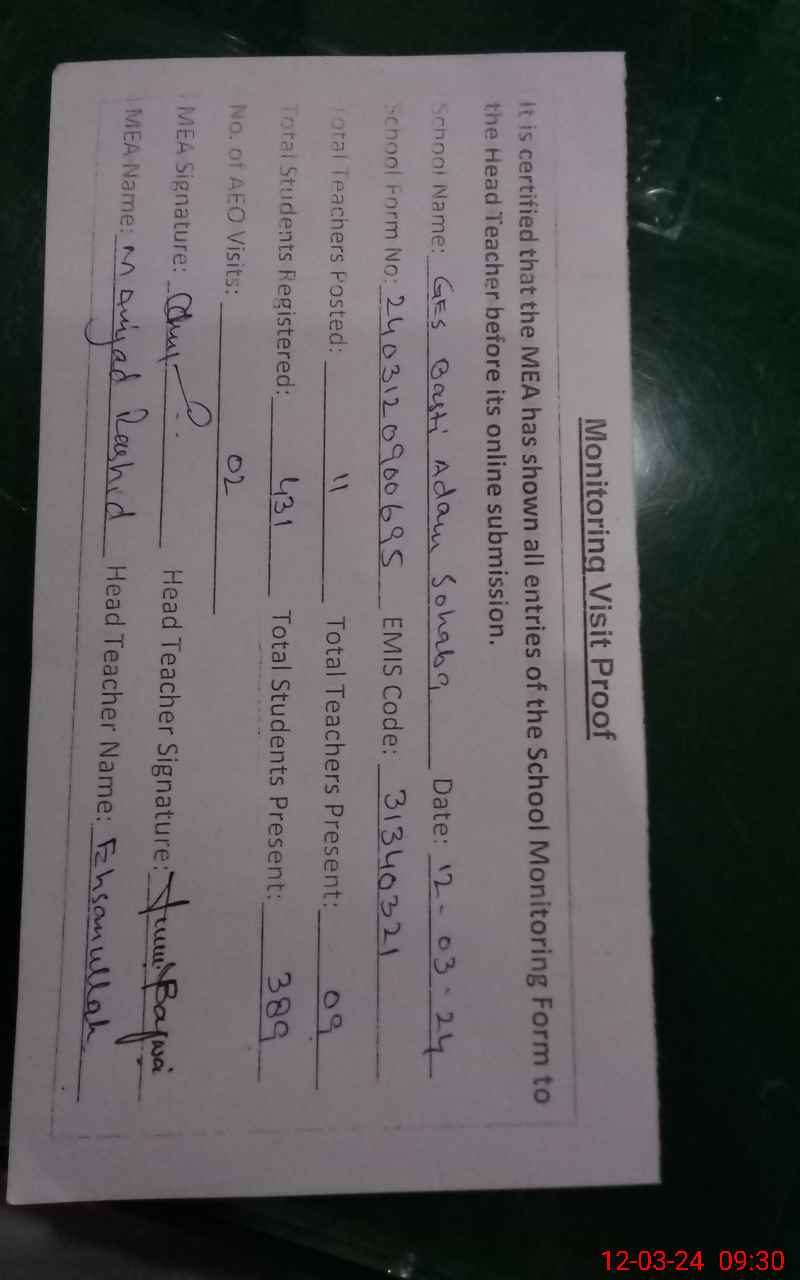 Monitoring Visit Proof
It is certified that the MEA has shown all entries of the School Monitoring Form to
the Head Teacher before its online submission.
School Name: GES Basti Adam Sohaba Date: 12-03-24
School Form No: 240312090069S EMIS Code: 31340321
Total Teachers Posted: 11 Total Teachers Present: 09
Total Students Registered: 431 Total Students Present: 389
No. of AEO Visits: 02
MEA Signature: Head Teacher Signature:
MEA Name: Rashid Head Teacher Name: Ehsanullah
12-03-24 09:30